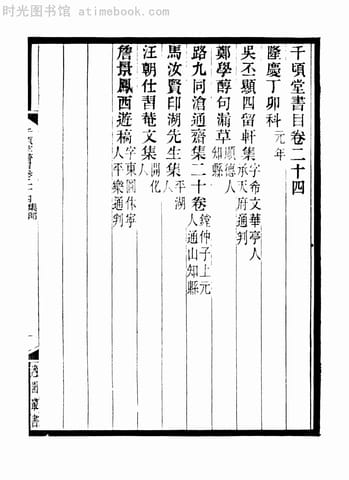 时光图书馆 - atimebook.com
千頃堂書目卷二十四
隆慶丁卯科元年
吳丕顯四留軒集字希文華亭人承天府通判
鄭學醇句漏草順德人知縣
路九同滄通齋集二十卷鏜仲子上元人通山知縣
馬汝賢印湖先生集平湖人
汪朝仕習菴文集開化人
詹景鳳西遊稿字東圖休寧人平樂通判
適園叢書